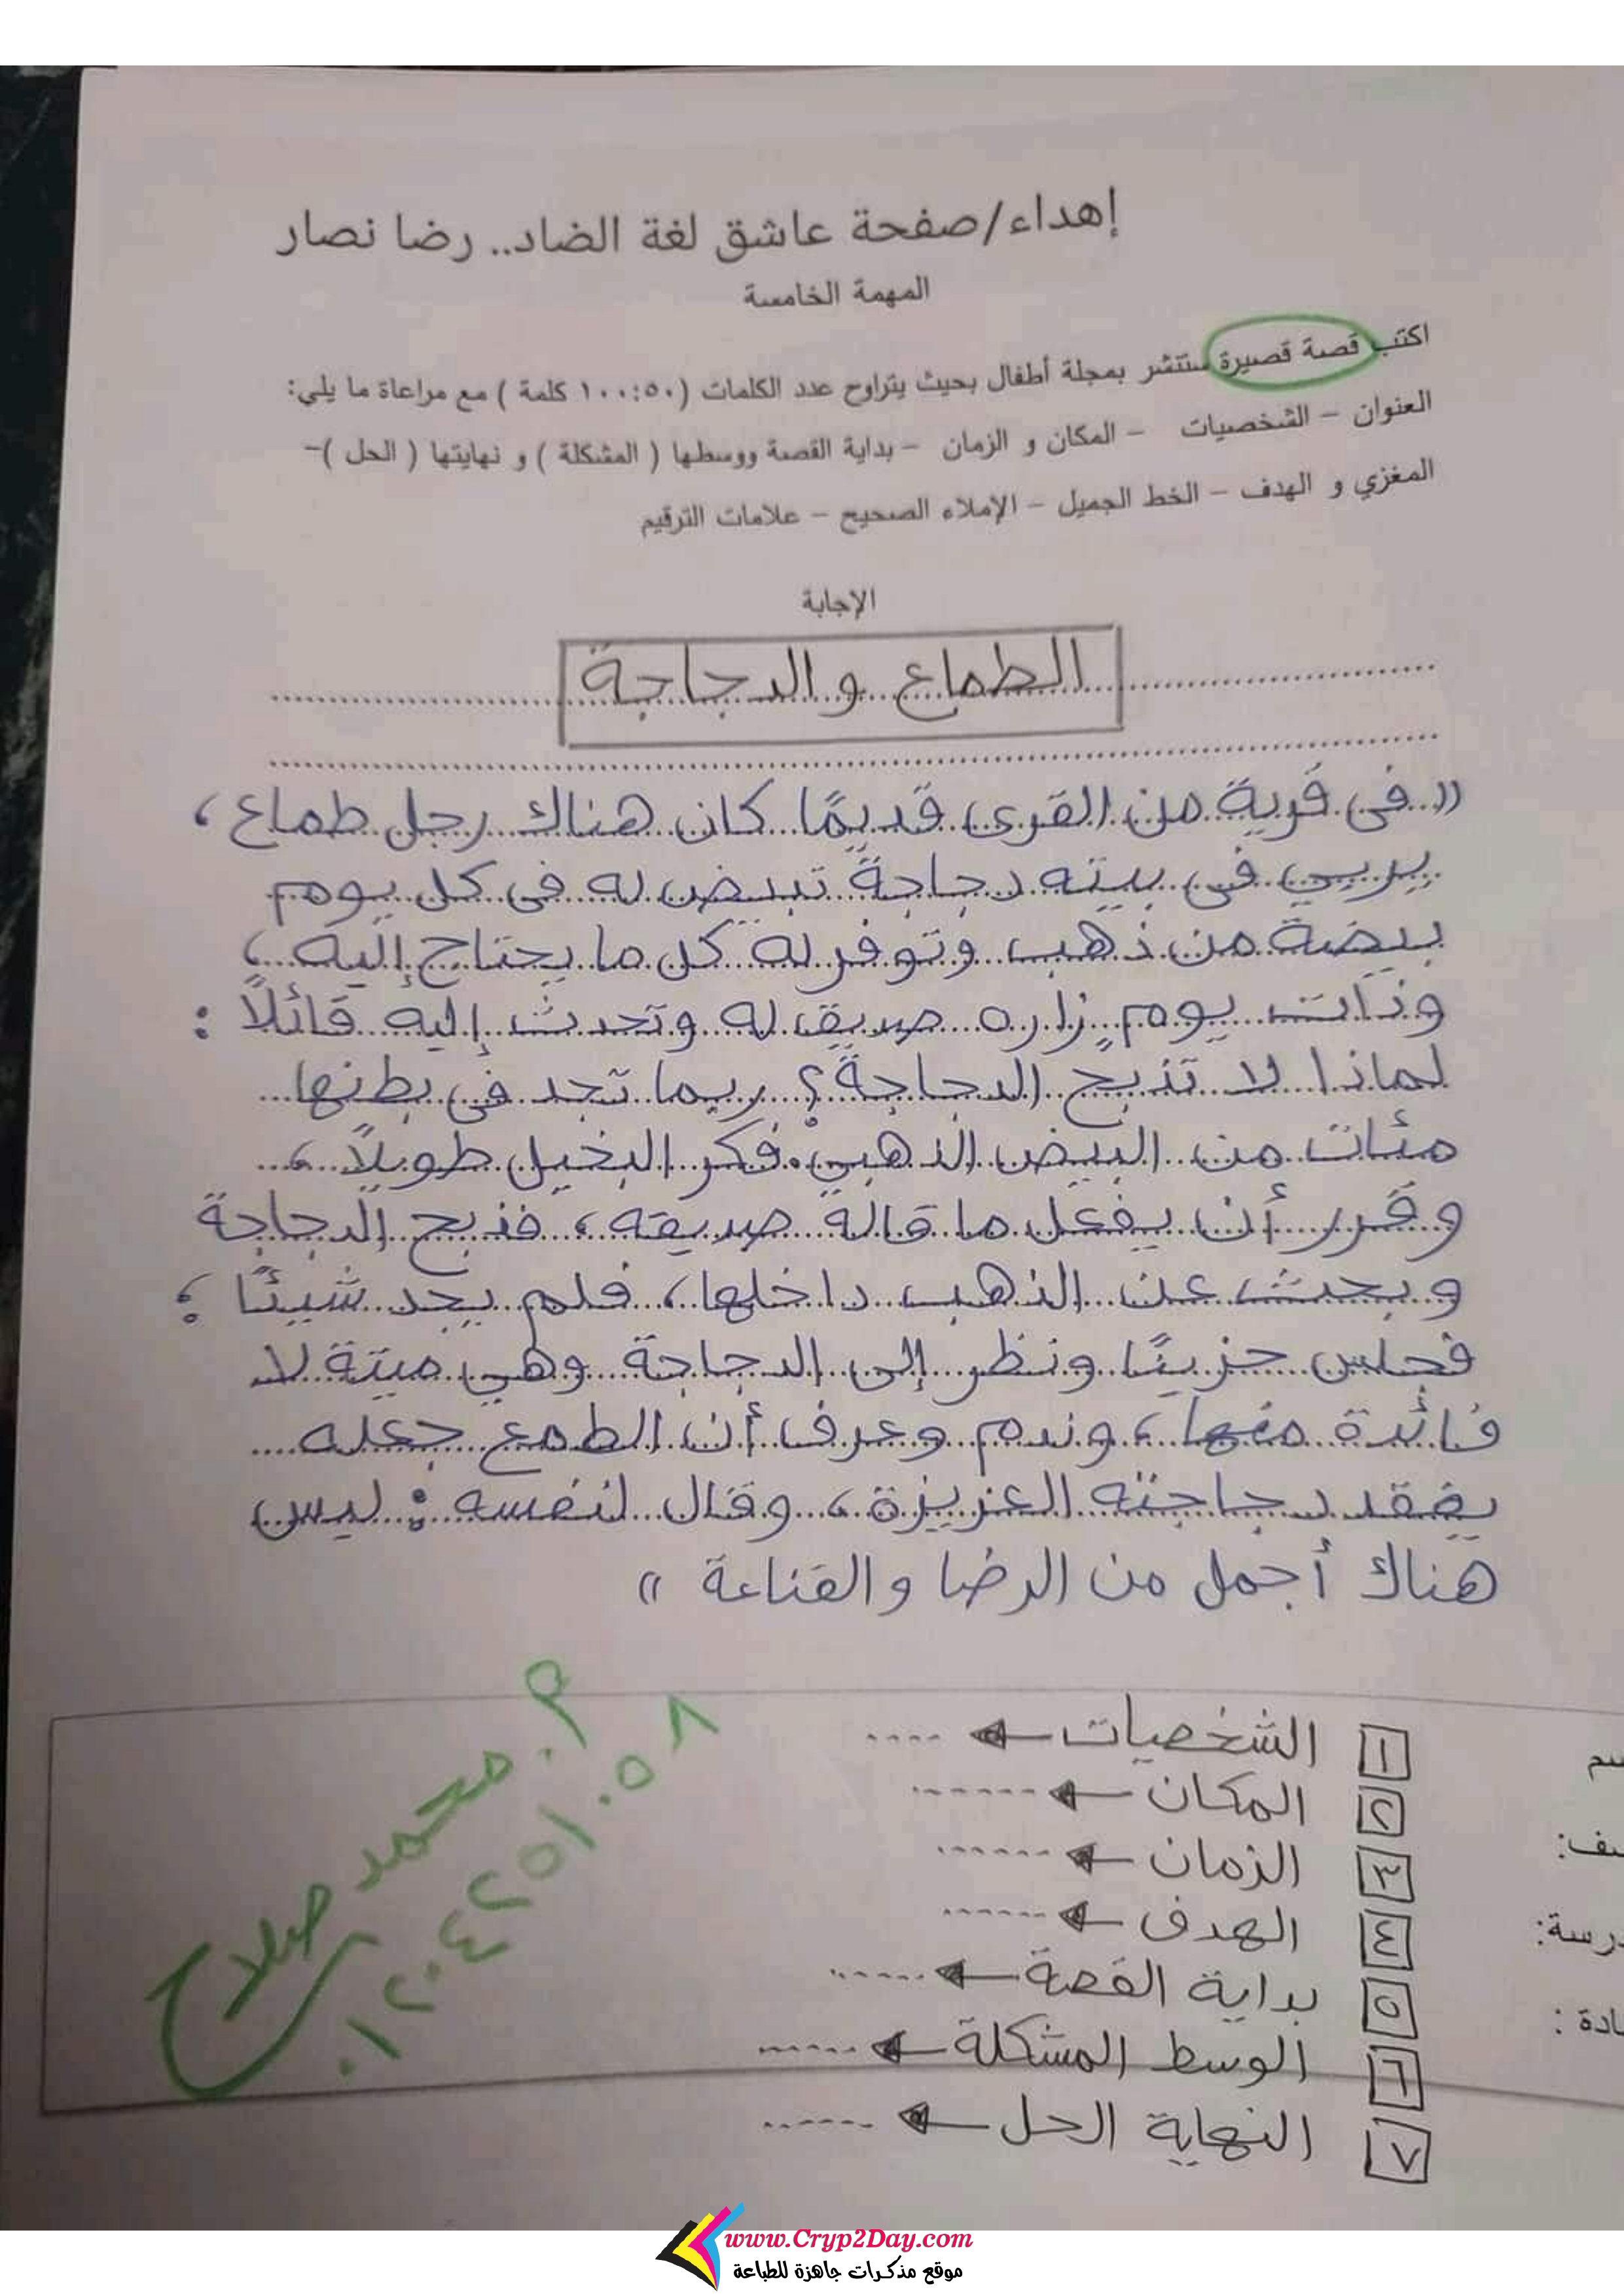 إهداء/صفحة عاشق لغة الضاد.. رضا نصار
المهمة الخامسة
اكتب قصة قصيرة ستتشر بمجلة أطفال بحيث يتراوح عدد الكلمات (٥٠:١٠٠ كلمة ) مع مراعاة ما يلي:
العنوان – الشخصيات – المكان و الزمان – بداية القصة ووسطها ( المشكلة ) و نهايتها ( الحل )–
المغزي و الهدف – الخط الجميل – الإملاء الصحيح – علامات الترقيم
الإجابة
الطماع والدجاجة
(( فى قرية من القرى قديمًا كان هناك رجل طماع ،
يربي فى بيته دجاجةً تبيض له فى كل يوم
بيضة من ذهب وتوفر له كل ما يحتاج إليه ،
وذات يومٍ زاره صديق له وتحدث إليه قائلاً :
لماذا لا تذبح الدجاجة ؟ ربما تجد فى بطنها
مئات من البيض الذهبي . فكر البخيل طويلاً ،
وقرر أن يفعل ما قاله صديقه ، فذبح الدجاجة
وبحث عن الذهب داخلها ، فلم يجد شيئًا ؛
فجلس حزينًا ونظر إلى الدجاجة وهي ميتة لا
فائدة منها ، وندم وعرف أن الطمع جعله
يفقد دجاجته العزيزة ، وقال لنفسه : ليس
هناك أجمل من الرضا والقناعة ))
١ الشخصيات ← ....
٢ المكان ← ......
٣ الزمان ← ......
٤ الهدف ← ......
٥ بداية القصة ← ......
٦ الوسط المشكلة ← ......
٧ النهاية الحل ← ......
م. محمد صلاح
٠١٢٠٤٢٥١٠٥٨
درسة:
www.Cryp2Day.com
موقع مذكرات جاهزة للطباعة